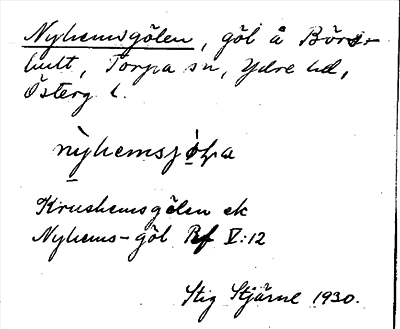 Nyhemsgölen, göl å Börs-
hult, Torpa sn, Ydre hd,
Österg l.
nỳhemsjờḷa
Krushemsgölen ek
Nyhems-göl Rf V:12
Stig Stjärne 1930.